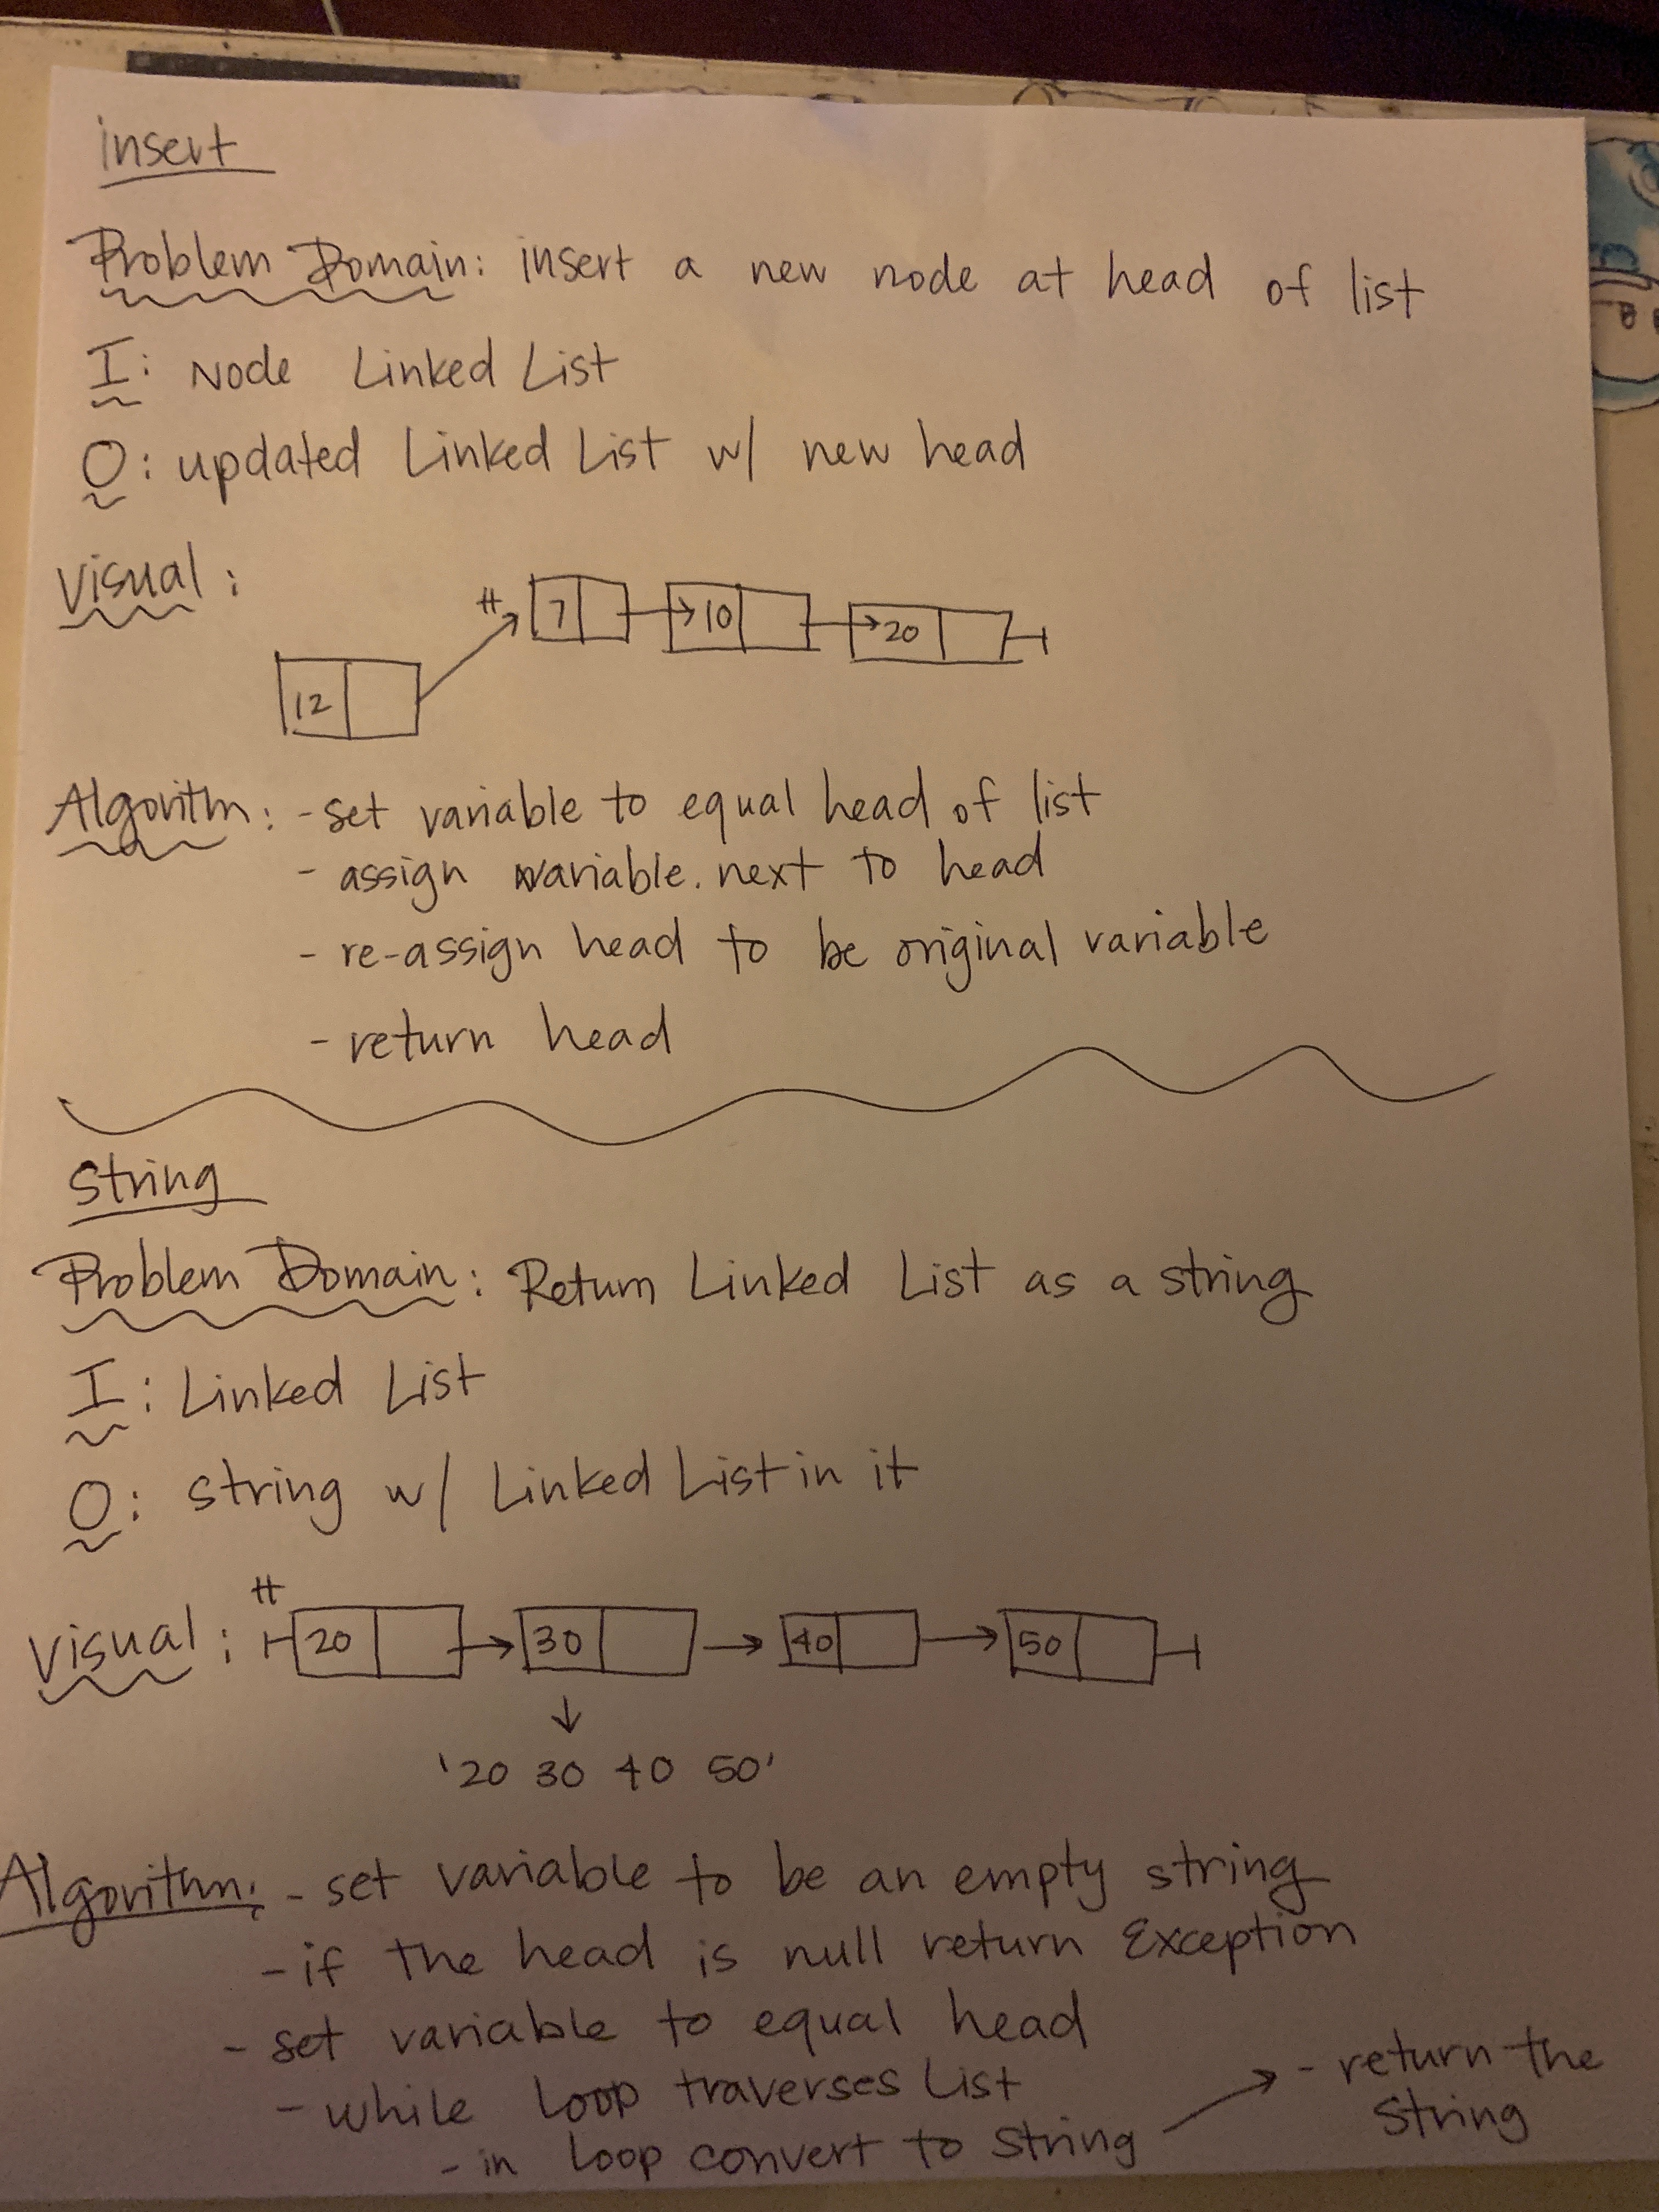 insert
Problem Domain: insert a new node at head of list
I: Node Linked List
O: updated Linked List w/ new head
Visual:
H 7 10 20
12
Algorithm: - set variable to equal head of list
- assign variable.next to head
- re-assign head to be original variable
- return head
String
Problem Domain: Return Linked List as a string
I: Linked List
O: string w/ Linked List in it
H
Visual: 20 30 40 50
'20 30 40 50'
Algorithm: - set variable to be an empty string
- if the head is null return Exception
- set variable to equal head
- while loop traverses List
- in loop convert to String
- return the
String